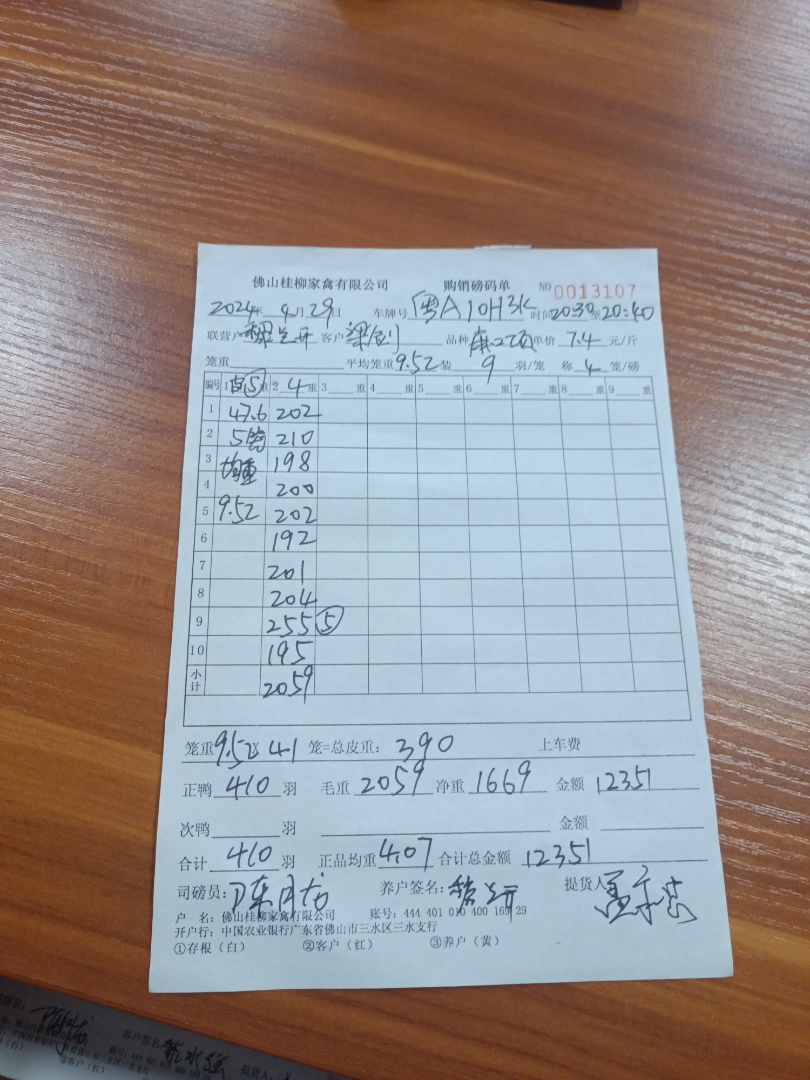 佛山桂柳家禽有限公司 购销磅码单 NO 0013107
2024年 9月29日 车牌号 粤A10H3K 时间20:30至20:40
联营户 客户 梁剑 品种 麻2项 单价 7.4 元/斤
笼重 平均笼重9.52 装 9 羽/笼 称 4 笼/磅
编号 1 ⑤重 2 4 重 3 重 4 重 5 重 6 重 7 重 8 重 9 重
1 47.6 202
2 5笼 210
3 均重 198
4 200
5 9.52 202
6 192
7 201
8 204
9 255 ⑤
10 195
小计 2059
笼重9.52x 41 笼=总皮重: 390 上车费
正鸭 410 羽 毛重 2059 净重 1669 金额 12351
次鸭 羽 金额
合计 410 羽 正品均重 4.07 合计总金额 12351
司磅员: 陈月龙 养户签名: 提货人
户 名: 佛山桂柳家禽有限公司 账号: 444 401 010 400 169 29
开户行: 中国农业银行广东省佛山市三水区三水支行
①存根（白） ②客户（红） ③养户（黄）
养户签名 提货人: